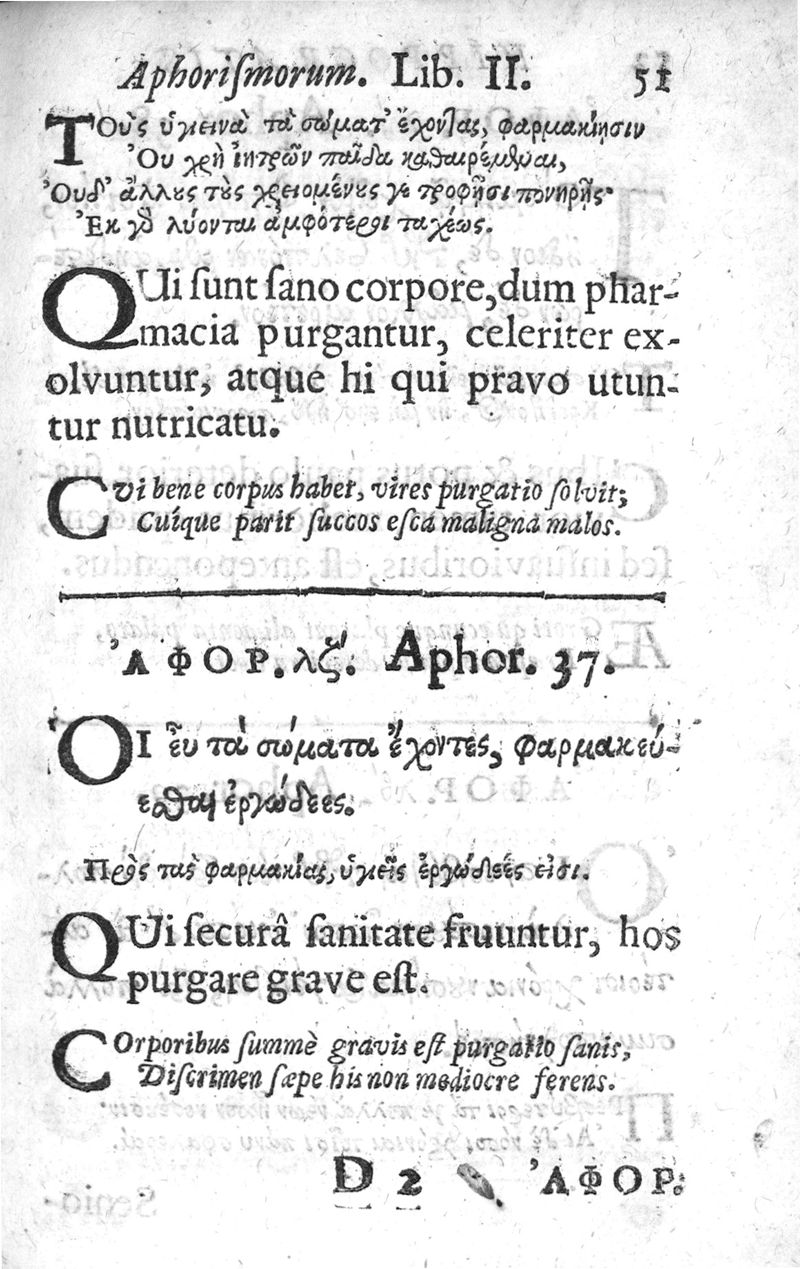 Aphoriſmorum. Lib. II. 51
Τοὺς ὑγιεινὰ τὰ σώματ' ἔχοντας, φαρμακίῃσιν
Ὀυ χρὴ ἰητρῶν παῖδα καθαιρέμεναι,
Ὀυδ' ἄλλους τοὺς χρειομένους γε τροφῇσι πονηρῇς·
Ἐκ γὰρ λύονται ἀμφότεροι ταχέως.
QUi ſunt ſano corpore, dum phar-
macia purgantur, celeriter ex-
olvuntur, atque hi qui pravo utun-
tur nutricatu.
CVi bene corpus habet, vires purgatio ſolvit;
Cuíque parit ſuccos eſca maligna malos.
ἈΦΟΡ. λζ'. Aphor. 37.
ΟΙ ἖υ τὰ σώματα ἔχοντες, φαρμακεύ-
εσθαι ἐργώδεες.
Πρὸς τὰς φαρμακίας, ὑγιεῖς ἐργώδεές εἰσι.
QUi ſecurâ ſanitate fruuntur, hos
purgare grave eſt.
COrporibus ſummè gravis eſt purgatio ſanis,
Diſcrimen ſæpe his non mediocre ferens.
D 2 ἈΦΟΡ.